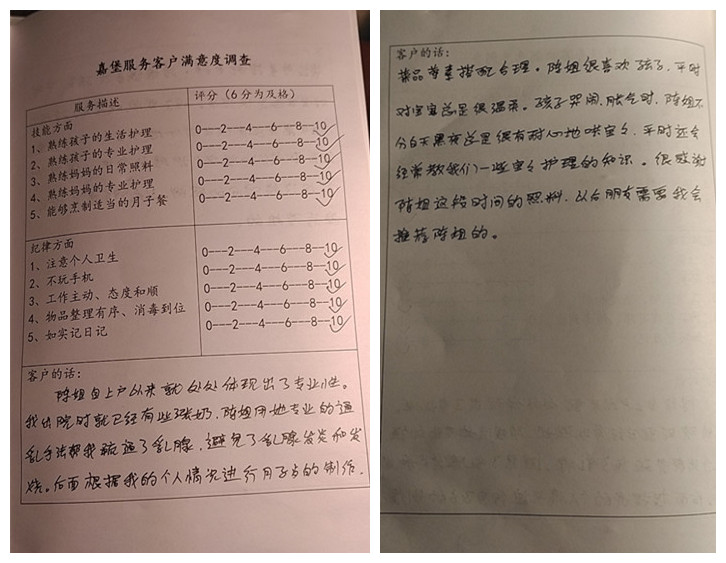 嘉堡服务客户满意度调查
服务描述 评分（6分为及格）
技能方面
1、熟练孩子的生活护理 0---2---4---6---8---10
2、熟练孩子的专业护理 0---2---4---6---8---10
3、熟练妈妈的日常照料 0---2---4---6---8---10
4、熟练妈妈的专业护理 0---2---4---6---8---10
5、能够烹制适当的月子餐 0---2---4---6---8---10
纪律方面
1、注意个人卫生 0---2---4---6---8---10
2、不玩手机 0---2---4---6---8---10
3、工作主动、态度和顺 0---2---4---6---8---10
4、物品整理有序、消毒到位 0---2---4---6---8---10
5、如实记日记 0---2---4---6---8---10
客户的话：
陈姐自上户以来就处处体现出了专业性。
我出院时就已经有些涨奶，陈姐用她专业的通
乳手法帮我疏通了乳腺，避免了乳腺发炎和发
烧。后面根据我的个人情况进行月子餐的制作，
客户的话：
菜品荤素搭配合理。陈姐很喜欢孩子，平时
对宝宝总是很温柔。孩子哭闹、胀气时，陈姐不
分白天黑夜总是很有耐心地哄宝宝，平时还会
经常教我们一些宝宝护理的知识。很感谢
陈姐这段时间的照料，以后朋友需要我会
推荐陈姐的。